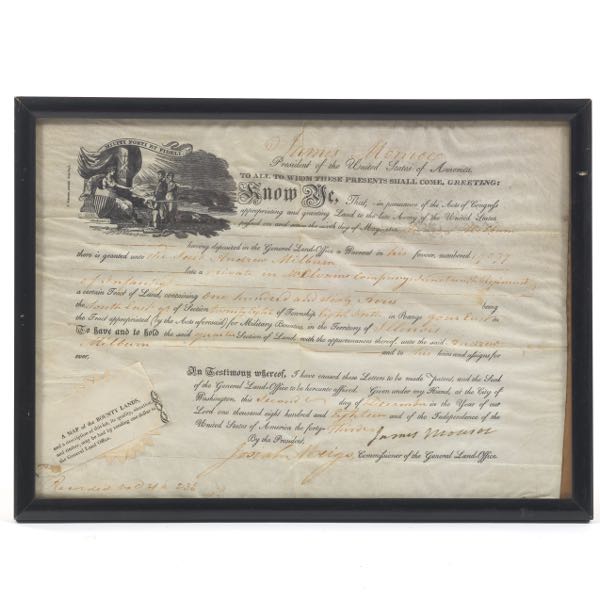 MILITI FORTI ET FIDELI
James Monroe
President of the United States of America.
TO ALL TO WHOM THESE PRESENTS SHALL COME, GREETING:
Know Ye, That, in pursuance of the Acts of Congress
appropriating and granting Land to the late Army of the United States,
passed on and since the sixth day of May, Andrew Milburn
having deposited in the General Land-Office a Warrant in his favour, numbered
there is granted unto the said Andrew Milburn
late a private in Company Regiment
of Infantry
a certain Tract of Land, containing One hundred and sixty Acres being
the South East qr of Section twenty eight of Township Eight South in Range four East in
the Tract appropriated (by the Acts aforesaid) for Military Bounties, in the Territory of Illinois
To have and to hold the said quarter Section of Land, with the appurtenances thereof, unto the said Andrew
Milburn and to his heirs and assigns for
ever.
In Testimony whereof, I have caused these Letters to be made patent, and the Seal
of the General Land-Office to be hereunto affixed. Given under my Hand, at the City of
Washington, this Second day of December in the Year of our
Lord one thousand eight hundred and Eighteen and of the Independence of the
United States of America the forty-Third
By the President, James Monroe
Josiah Meigs, Commissioner of the General Land-Office.
A MAP of the BOUNTY LANDS,
and a description of the soil, its quality, situation,
and timber, may be had by sending one dollar to
the General Land Office.
Recorded Vol 232